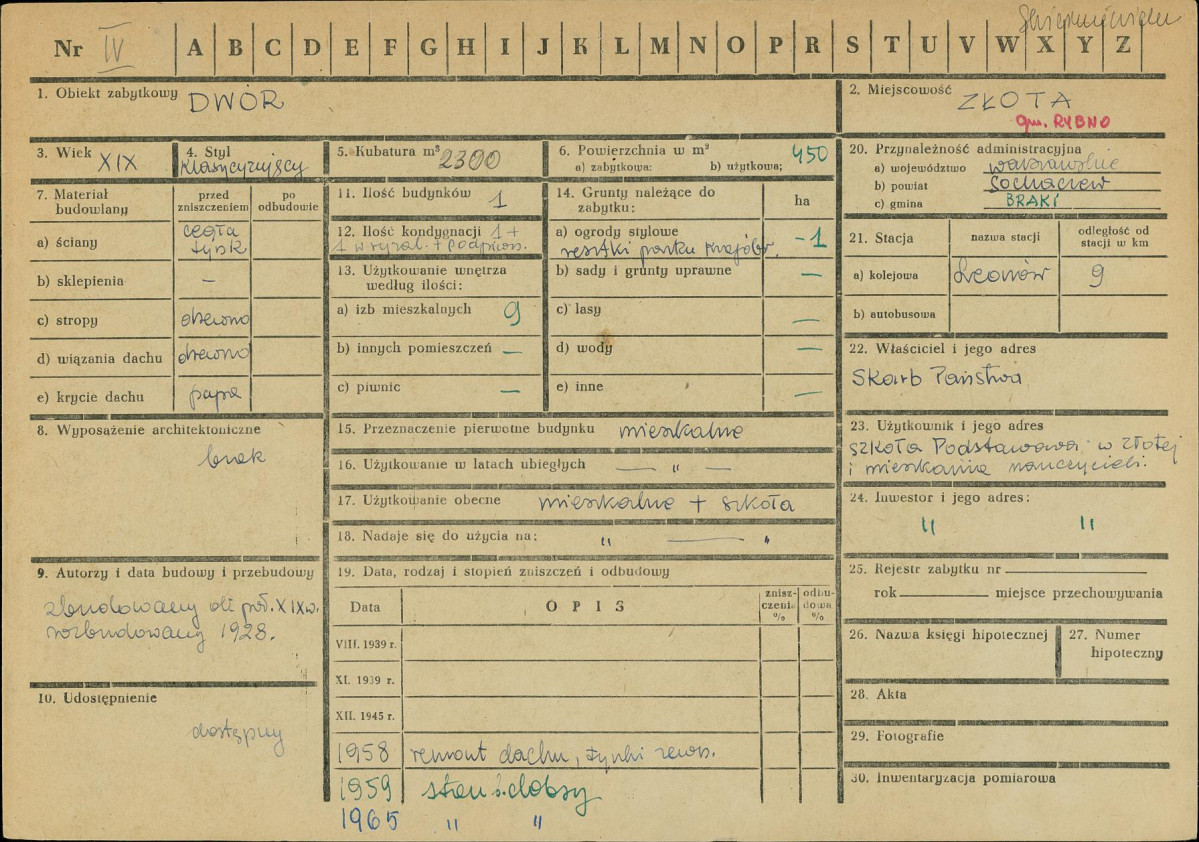 Skierniewickie
Nr IV A B C D E F G H I J K L M N O P R S T U V W X Y Z
1. Obiekt zabytkowy DWÓR
2. Miejscowość ZŁOTA
gm. RYBNO
3. Wiek XIX
4. Styl klasycyzujący
5. Kubatura m³ 2300
6. Powierzchnia w m² 450
a) zabytkowa: b) użytkowa;
7. Materiał budowlany
przed zniszczeniem
po odbudowie
a) ściany cegła tynk
b) sklepienia –
c) stropy drewno
d) wiązania dachu drewno
e) krycie dachu papa
8. Wyposażenie architektoniczne
brak
9. Autorzy i data budowy i przebudowy
zbudowany ok. poł. XIX w.
rozbudowany 1928.
10. Udostępnienie
dostępny
11. Ilość budynków 1
12. Ilość kondygnacji 1 +
1 w ryzal. +
13. Użytkowanie wnętrza
według ilości:
a) izb mieszkalnych 9
b) innych pomieszczeń –
c) piwnic –
14. Grunty należące do
zabytku: ha
a) ogrody stylowe – 1
resztki parku krajobr.
b) sady i grunty uprawne –
c) lasy –
d) wody –
e) inne –
15. Przeznaczenie pierwotne budynku mieszkalne
16. Użytkowanie w latach ubiegłych — " —
17. Użytkowanie obecne mieszkalne + szkoła
18. Nadaje się do użycia na: " — "
19. Data, rodzaj i stopień zniszczeń i odbudowy
Data OPIS zniszczenia % odbudowa %
VIII. 1939 r.
XI. 1939 r.
XII. 1945 r.
1958 remont dachu, tynki zewn.
1959 stan ś. dobry
1965 " "
20. Przynależność administracyjna
a) województwo warszawskie
b) powiat Sochaczew
c) gmina BRAKI
21. Stacja nazwa stacji odległość od
stacji w km
a) kolejowa Leonów 9
b) autobusowa
22. Właściciel i jego adres
Skarb Państwa
23. Użytkownik i jego adres
szkoła Podstawowa w Złotej
i mieszkania nauczycieli.
24. Inwestor i jego adres:
" "
25. Rejestr zabytku nr
rok miejsce przechowywania
26. Nazwa księgi hipotecznej
27. Numer
hipoteczny
28. Akta
29. Fotografie
30. Inwentaryzacja pomiarowa